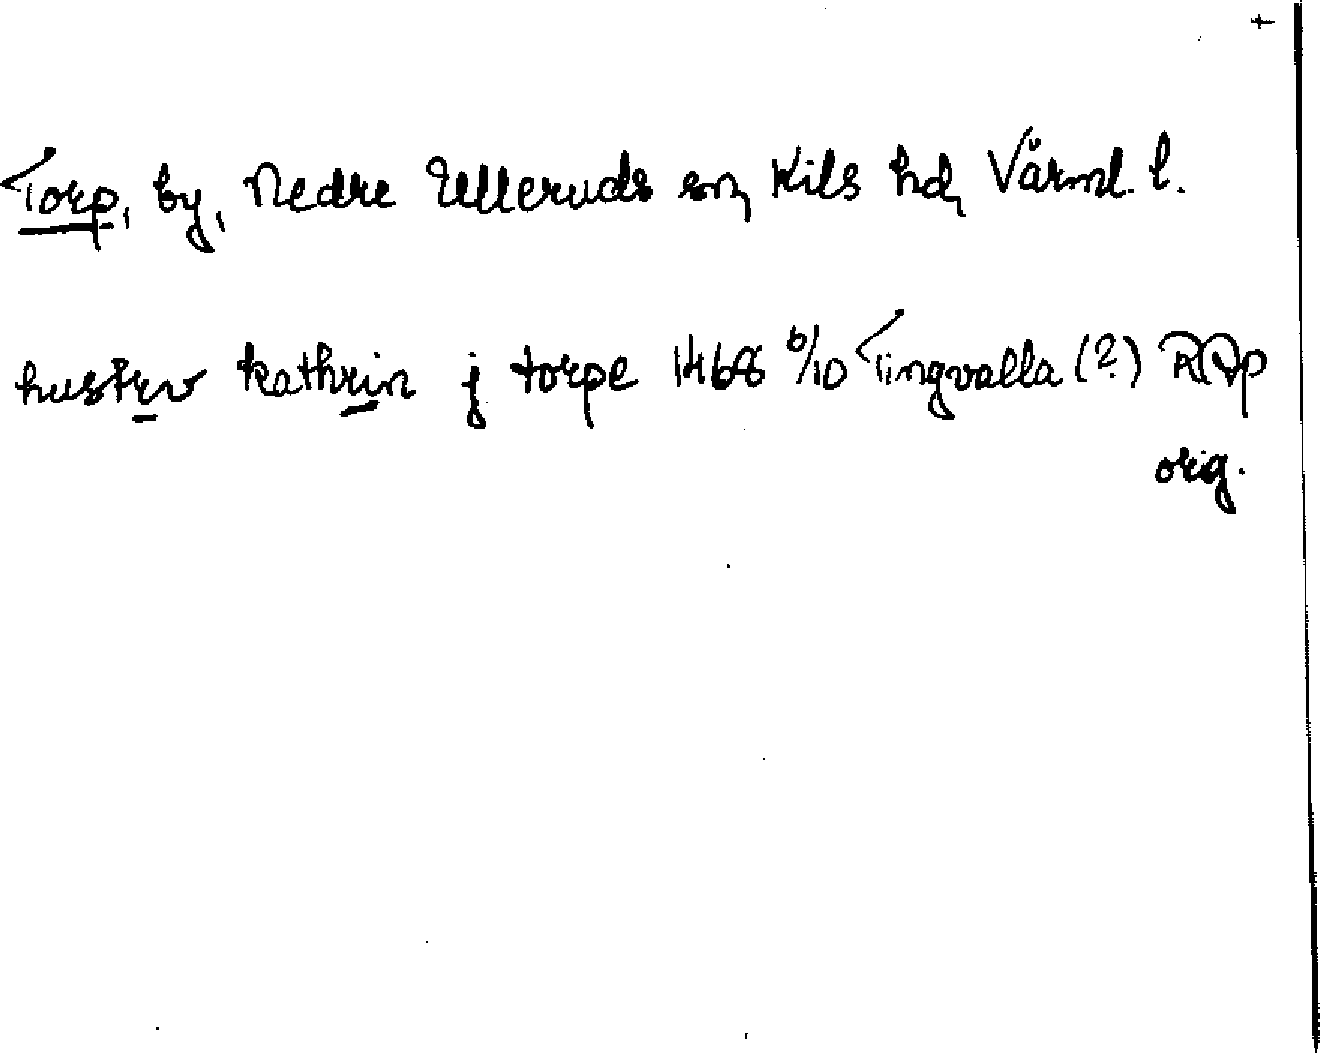 +
Torp, by, Nedre Ulleruds sn, Kils hd, Värml. l.
hustrv kathrin j torpe 1468 6/10 Tingvalla (?) RAp
orig.